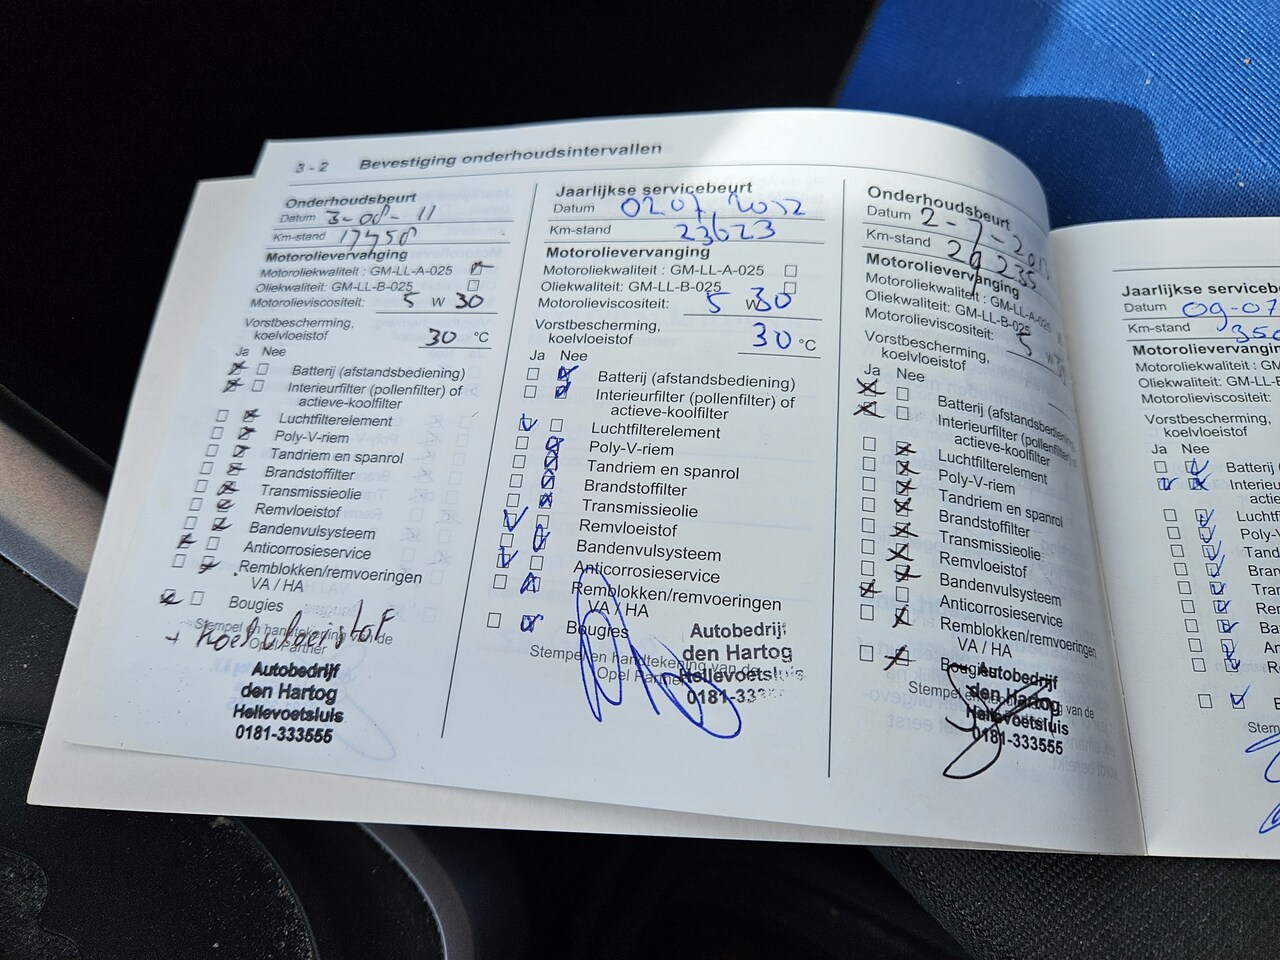 3-2 Bevestiging onderhoudsintervallen
Onderhoudsbeurt
Datum 3-08-11
Km-stand 17458
Motorolievervanging
Motoroliekwaliteit : GM-LL-A-025
Oliekwaliteit: GM-LL-B-025
Motorolieviscositeit: 5 W 30
Vorstbescherming,
koelvloeistof 30 °C
Ja Nee
Batterij (afstandsbediening)
Interieurfilter (pollenfilter) of
actieve-koolfilter
Luchtfilterelement
Poly-V-riem
Tandriem en spanrol
Brandstoffilter
Transmissieolie
Remvloeistof
Bandenvulsysteem
Anticorrosieservice
Remblokken/remvoeringen
VA / HA
Bougies
+ koelvloeistof
Stempel en handtekening van de
Opel Partner
Autobedrijf
den Hartog
Hellevoetsluis
0181-333555
Jaarlijkse servicebeurt
Datum 0207 2012
Km-stand 23623
Motorolievervanging
Motoroliekwaliteit : GM-LL-A-025
Oliekwaliteit: GM-LL-B-025
Motorolieviscositeit: 5 W 30
Vorstbescherming,
koelvloeistof 30 °C
Ja Nee
Batterij (afstandsbediening)
Interieurfilter (pollenfilter) of
actieve-koolfilter
Luchtfilterelement
Poly-V-riem
Tandriem en spanrol
Brandstoffilter
Transmissieolie
Remvloeistof
Bandenvulsysteem
Anticorrosieservice
Remblokken/remvoeringen
VA / HA
Bougies
Stempel en handtekening van de
Opel Partner
Autobedrijf
den Hartog
Hellevoetsluis
0181-333
Onderhoudsbeurt
Datum 2-7-201
Km-stand 29235
Motorolievervanging
Motoroliekwaliteit : GM-LL-A-025
Oliekwaliteit: GM-LL-B-025
Motorolieviscositeit: 5 W
Vorstbescherming,
koelvloeistof
Ja Nee
Batterij (afstandsbediening)
Interieurfilter (pollenfilter) of
actieve-koolfilter
Luchtfilterelement
Poly-V-riem
Tandriem en spanrol
Brandstoffilter
Transmissieolie
Remvloeistof
Bandenvulsysteem
Anticorrosieservice
Remblokken/remvoeringen
VA / HA
Bougies
Stempel en van de
Autobedrijf
den Hartog
Hellevoetsluis
0181-333555
Jaarlijkse serviceb
Datum 09-07
Km-stand 350
Motorolievervangin
Motoroliekwaliteit : GM
Oliekwaliteit: GM-LL-B
Motorolieviscositeit:
Vorstbescherming,
koelvloeistof
Ja Nee
Batterij (
Interieu
actie
Luchtf
Poly-V
Tand
Bran
Tra
Re
Ba
An
R
B
Stem